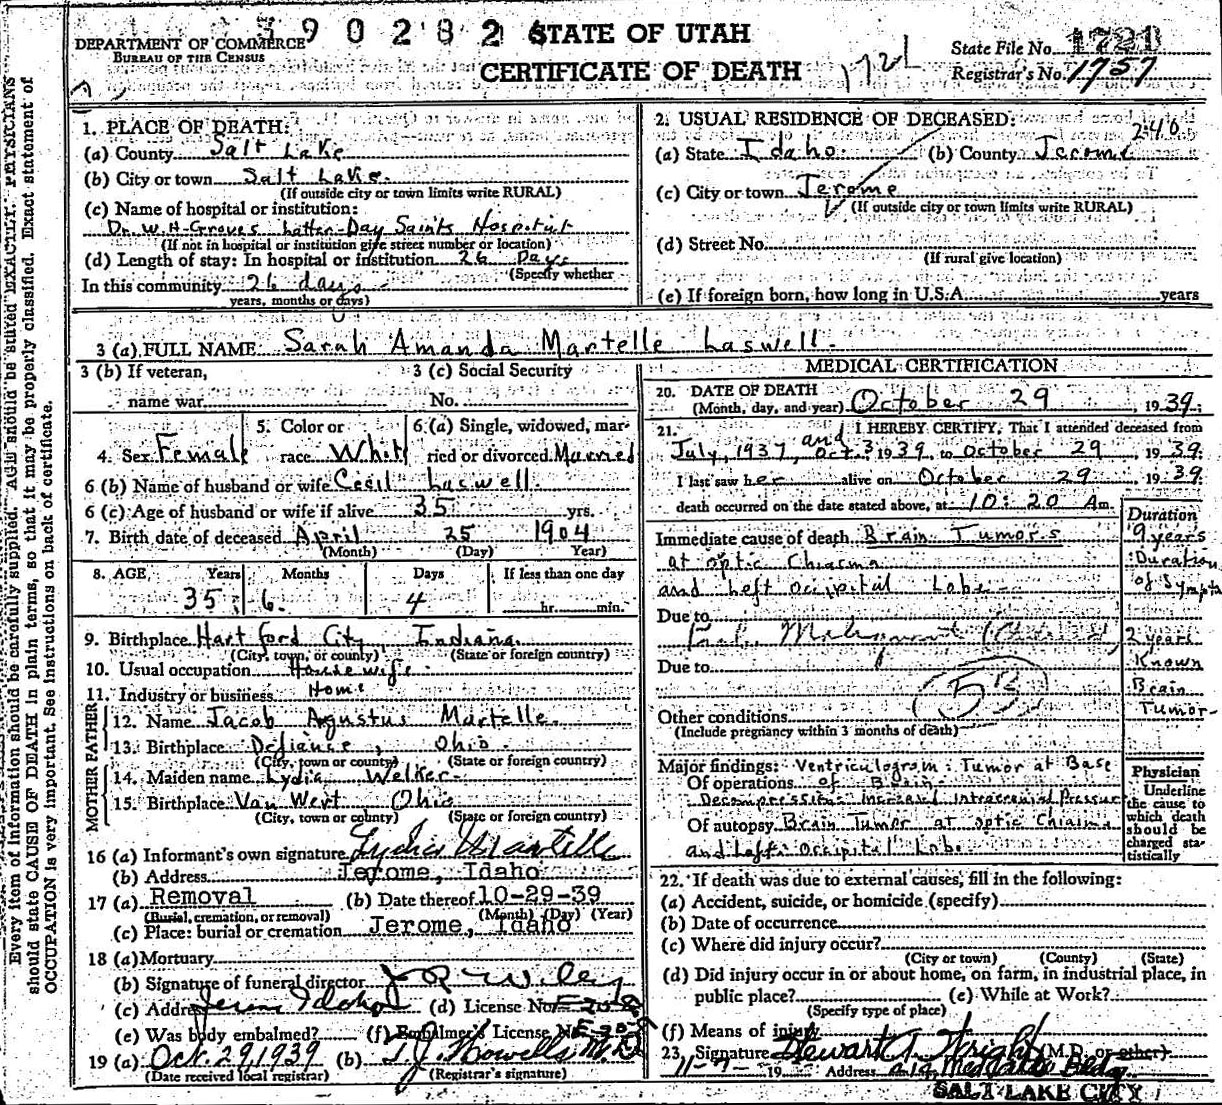 390282
STATE OF UTAH
DEPARTMENT OF COMMERCE
BUREAU OF THE CENSUS
CERTIFICATE OF DEATH
1721
State File No. 1721
Registrar's No. 1757
1. PLACE OF DEATH:
(a) County Salt Lake
(b) City or town Salt Lake.
(If outside city or town limits write RURAL)
(c) Name of hospital or institution:
Dr. W. H. Groves Latter-Day Saints Hospital
(If not in hospital or institution give street number or location)
(d) Length of stay: In hospital or institution 26 Days
(Specify whether
In this community 26 days
years, months or days)
2. USUAL RESIDENCE OF DECEASED:
240
(a) State Idaho. (b) County Jerome
(c) City or town Jerome
(If outside city or town limits write RURAL)
(d) Street No.
(If rural give location)
(e) If foreign born, how long in U.S.A. years
3 (a) FULL NAME Sarah Amanda Martelle Laswell.
3 (b) If veteran, 3 (c) Social Security
name war No.
4. Sex Female 5. Color or race White 6 (a) Single, widowed, married or divorced Married
6 (b) Name of husband or wife Cecil Laswell.
6 (c) Age of husband or wife if alive 35 yrs.
7. Birth date of deceased April 25 1904
(Month) (Day) Year)
8. AGE, Years Months Days If less than one day
35 6 4 hr. min.
9. Birthplace Hartford City Indiana.
(City, town, or county) (State or foreign country)
10. Usual occupation Housewife
11. Industry or business Home
FATHER
12. Name Jacob Agustus Martelle.
13. Birthplace Defiance, Ohio.
(City, town or county) (State or foreign country)
MOTHER
14. Maiden name Lydia Welker
15. Birthplace Van Wert Ohio
(City, town or county) (State or foreign country)
16 (a) Informant's own signature Lydia Martelle
(b) Address Jerome, Idaho
17 (a) Removal (b) Date thereof 10-29-39
(Burial, cremation, or removal) (Month) (Day) (Year)
(c) Place: burial or cremation Jerome, Idaho
18 (a) Mortuary
(b) Signature of funeral director Wiley
(c) Address Jerome Idaho (d) License No.
(e) Was body embalmed? (f) Embalmer's License No.
19 (a) Oct. 29, 1939 (b) T. J. Howells M.D.
(Date received local registrar) (Registrar's signature)
MEDICAL CERTIFICATION
20. DATE OF DEATH
(Month, day, and year) October 29, 1939.
21. I HEREBY CERTIFY, That I attended deceased from
July, 1937, and Oct. 3 1939, to October 29, 1939.
I last saw her alive on October 29, 1939.
death occurred on the date stated above, at 10:20 Am.
Duration
Immediate cause of death Brain Tumors
at optic Chiasma
and Left Occipital Lobe
9 years
Duration
of Sympts
Due to
Malignant
2 years
Known
Brain
Tumor-
Due to
53
Other conditions
(Include pregnancy within 3 months of death)
Major findings: Ventriculogram: Tumor at Base
Of operations of Brain.
Decompression Increased Intracranial Pressure
Of autopsy Brain Tumor at optic Chiasma
and Left Occipital Lobe
Physician
Underline
the cause to
which death
should be
charged sta-
tistically
22. If death was due to external causes, fill in the following:
(a) Accident, suicide, or homicide (specify)
(b) Date of occurrence
(c) Where did injury occur?
(City or town) (County) (State)
(d) Did injury occur in or about home, on farm, in industrial place, in
public place? (e) While at Work?
(Specify type of place)
(f) Means of injury
23. Signature Stewart A. Wright (M.D. or other)
11-7- 19 Address
SALT LAKE CITY
Every item of information should be carefully supplied. AGE should be stated EXACTLY. PHYSICIANS
should state CAUSE OF DEATH in plain terms, so that it may be properly classified. Exact statement of
OCCUPATION is very important. See instructions on back of certificate.